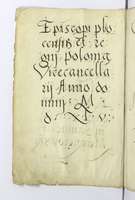 Episcopi plo
censis & re
gni poloniæ
Vicecancella
rii Anno do
mini M
d v